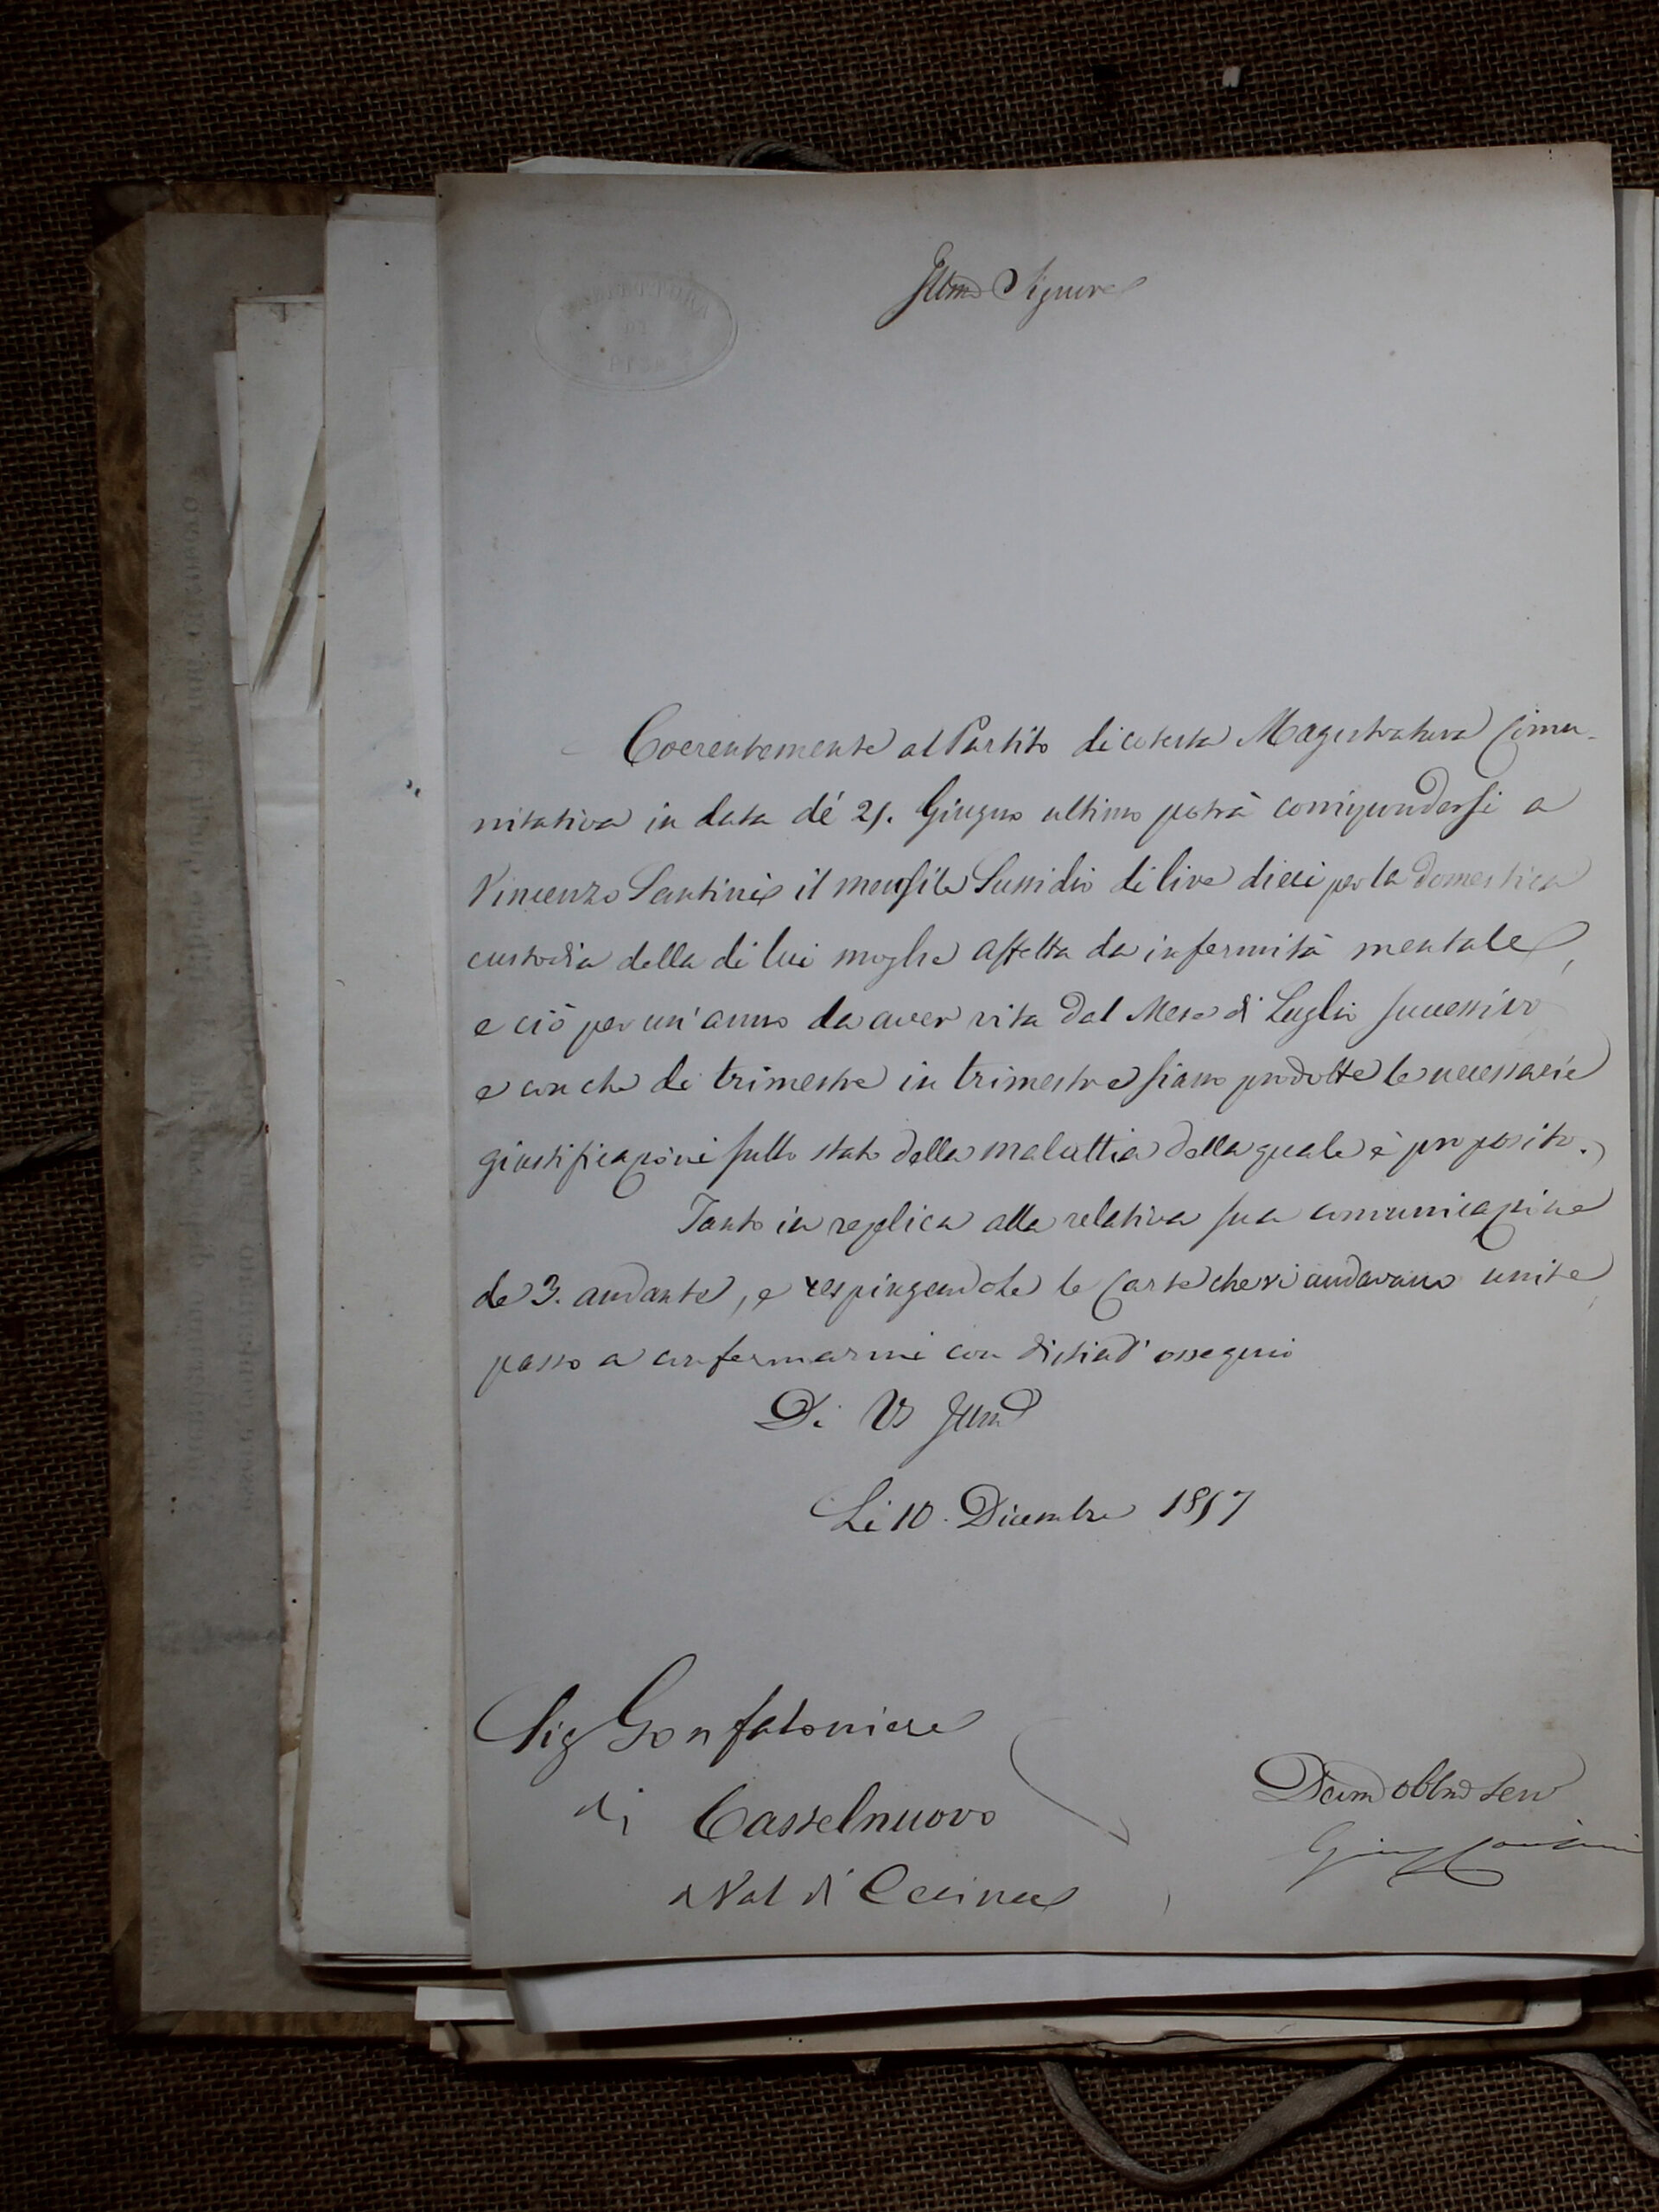 PREFETTURA
DI
PISA
Illmo Signore
Coerentemente al Partito di cotesta Magistratura Comu-
nitativa in data de' 21. Giugno ultimo potrà corrispondersi a
Vincenzo Santini il mensile Sussidio di lire dieci per la domestica
custodia della di lui moglie affetta da infermità mentale,
e ciò per un'anno da aver vita dal Mese di Luglio successivo
e con che di trimestre in trimestre siano prodotte le necessarie
giustificazioni sullo stato della malattia della quale è proposito.
Tanto in replica alla relativa sua comunicazione
de 3. andante, e respingendole le Carte che vi andavano unite,
passo a confermarmi con distint' ossequio
Di VS Illma
Li 10. Dicembre 1857
Sig Gonfaloniere
di Castelnuovo
Val di Cecina
Devmo obblmo Serv